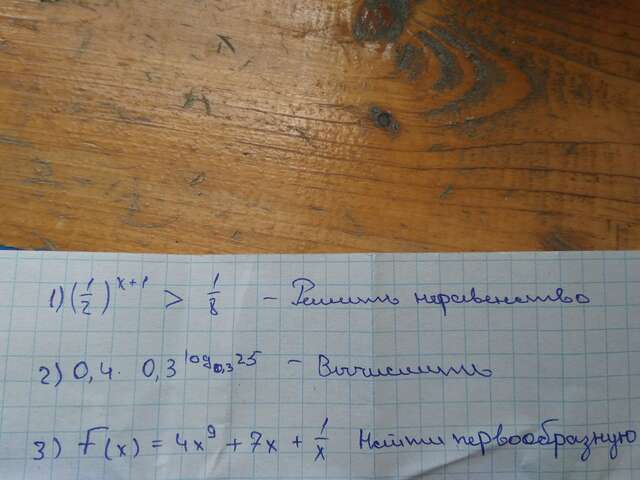 1) (1/2)^(x+1) > 1/8 - Решить неравенство
2) 0,4 · 0,3^(log_0,3 25) - Вычислить
3) F(x) = 4x^9 + 7x + 1/x Найти первообразную